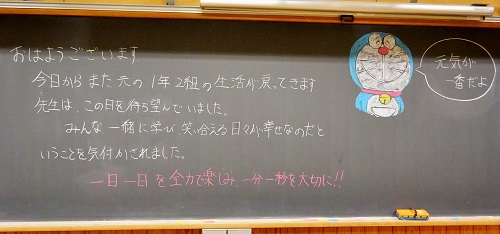 おはようございます
今日からまた元の1年2組の生活が戻ってきます
先生は、この日を待ち望んでいました。
みんな一緒に学び、笑い合える日々が幸せなのだと
いうことを気付かされました。
一日一日を全力で楽しみ、一分一秒を大切に!!
元気が
一番だよ